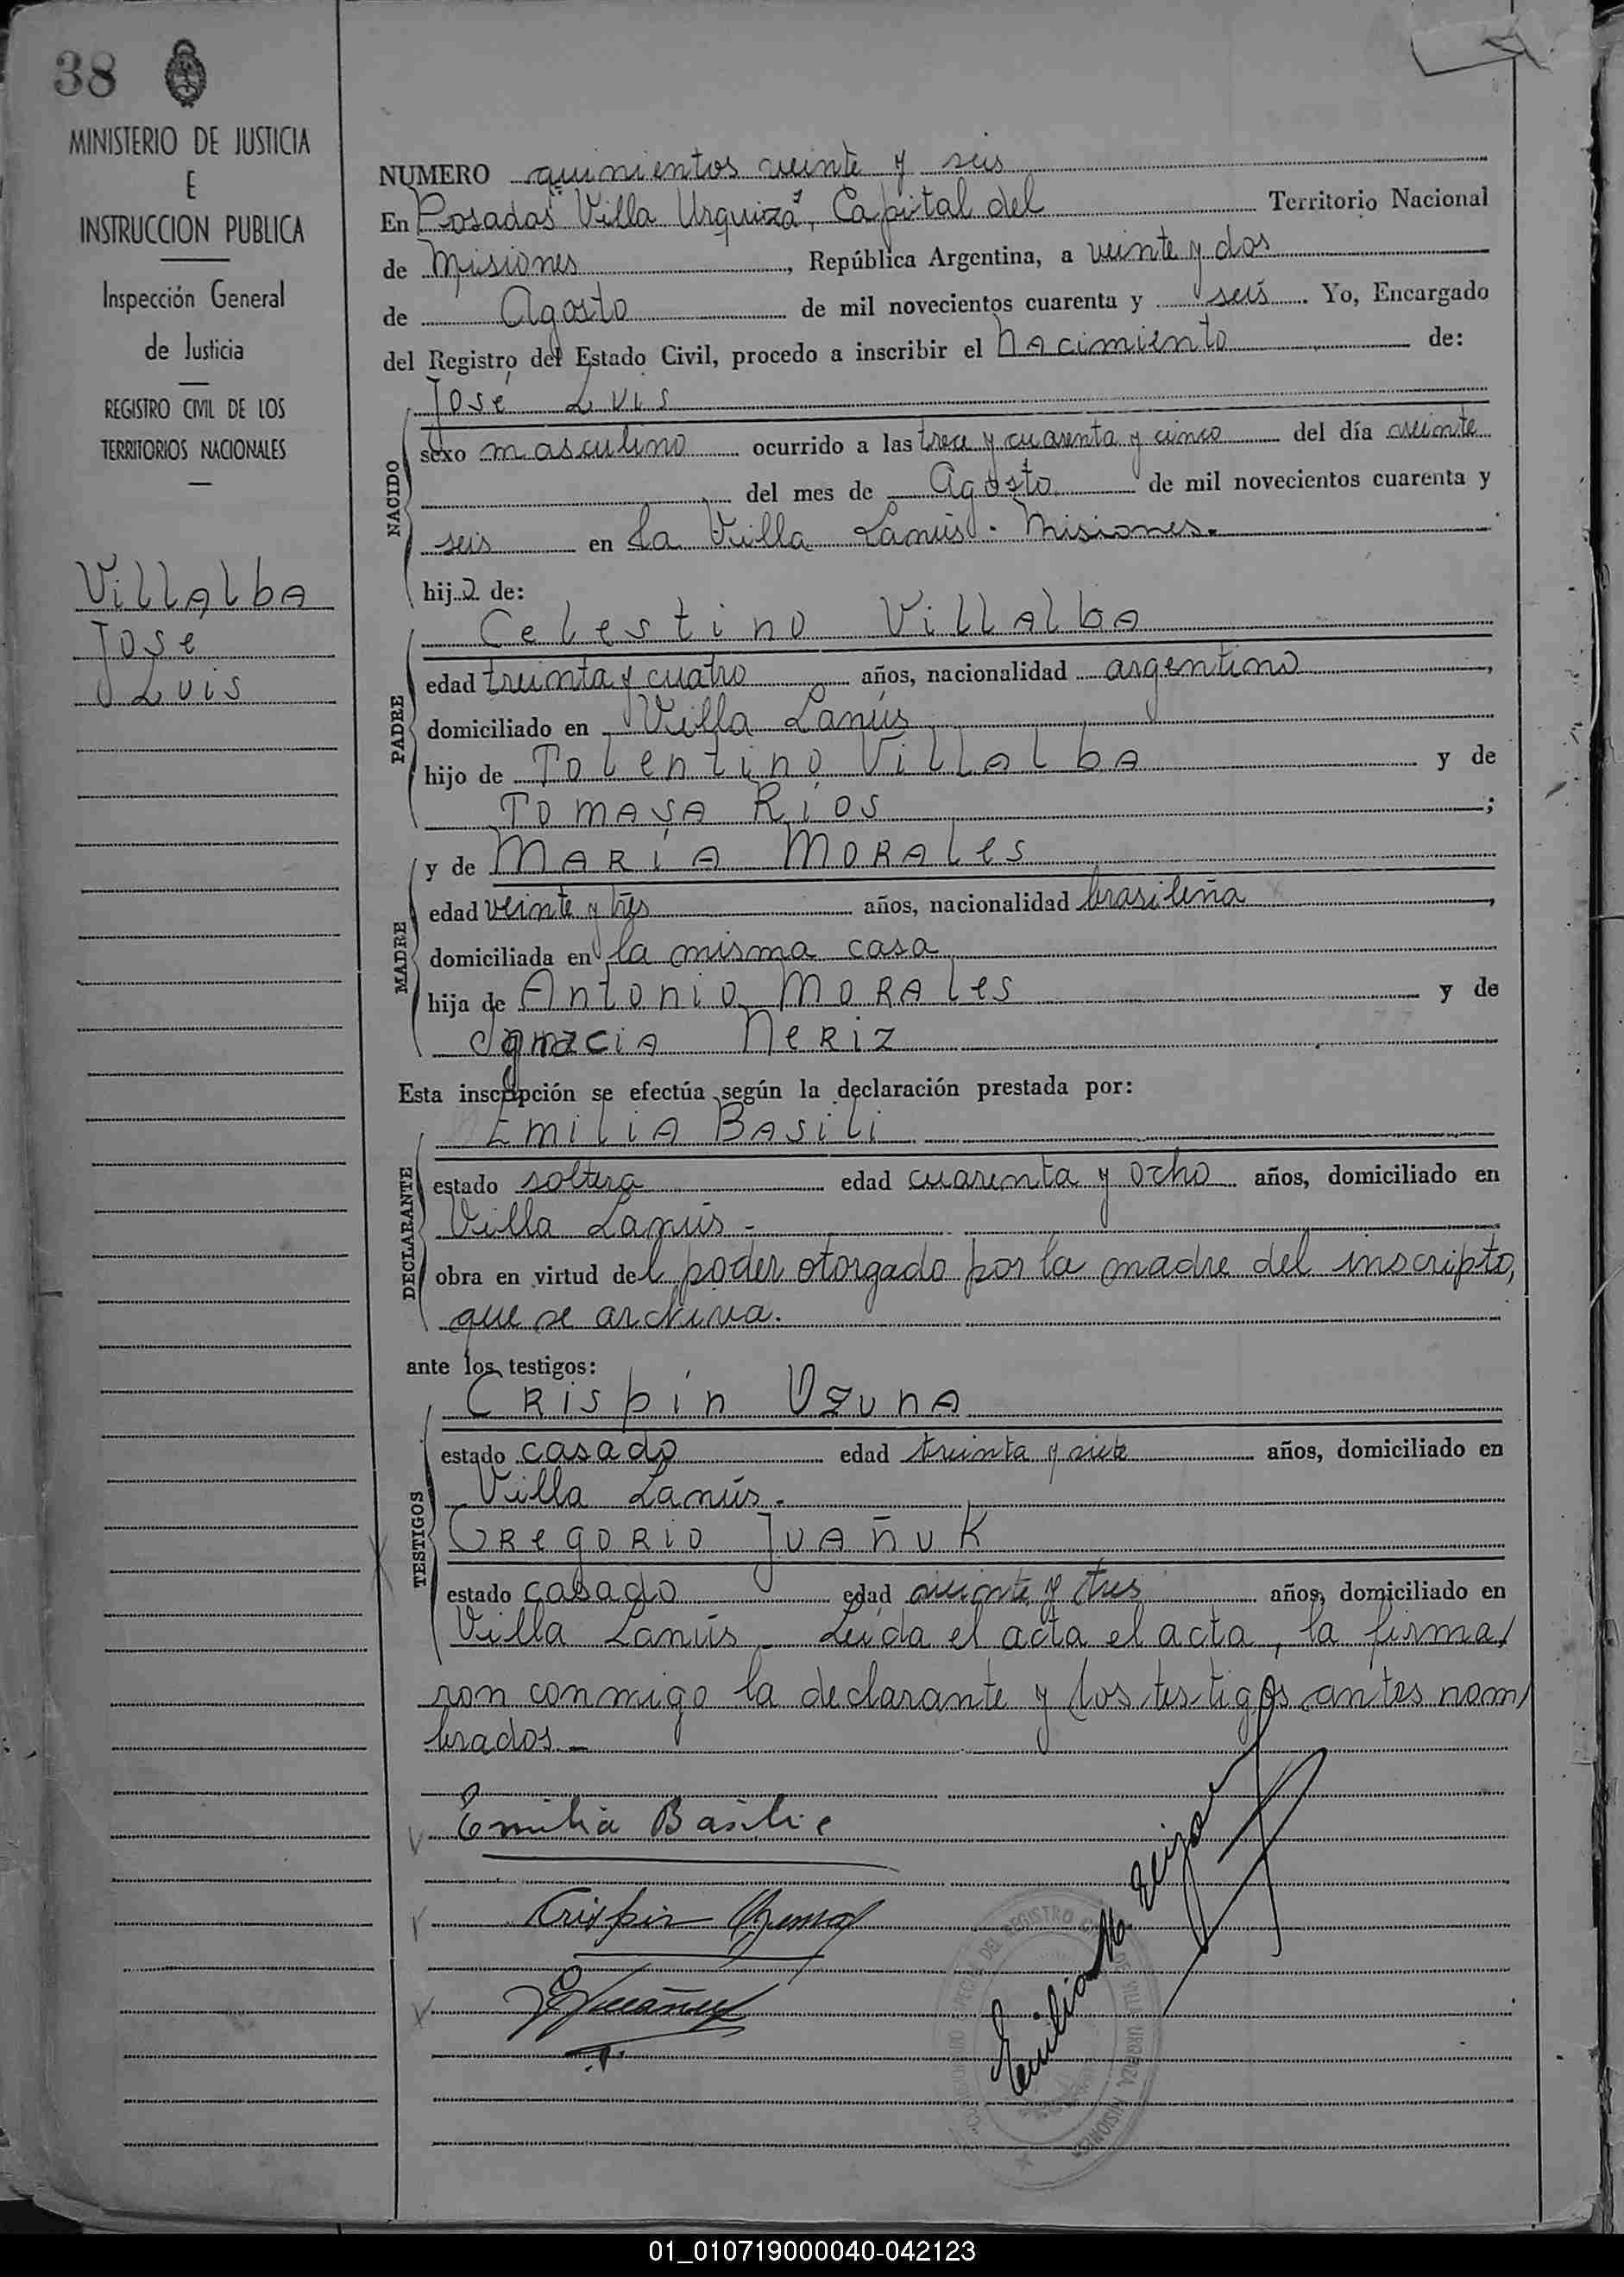 38
MINISTERIO DE JUSTICIA
E
INSTRUCCION PUBLICA
Inspección General
de Justicia
REGISTRO CIVIL DE LOS
TERRITORIOS NACIONALES
Villalba
José
Luis
NUMERO quinientos veinte y seis
En Posadas "Villa Urquiza", Capital del Territorio Nacional
de Misiones, República Argentina, a veinte y dos
de Agosto de mil novecientos cuarenta y seis. Yo, Encargado
del Registro del Estado Civil, procedo a inscribir el nacimiento de:
José Luis
NACIDO
sexo masculino ocurrido a las trece y cuarenta y cinco del día veinte
del mes de Agosto de mil novecientos cuarenta y
seis en la Villa Lanús. Misiones.
hijo de:
Celestino Villalba
PADRE
edad treinta y cuatro años, nacionalidad argentino,
domiciliado en Villa Lanús
hijo de Tolentino Villalba y de
Tomasa Ríos;
MADRE
y de María Morales
edad veinte y tres años, nacionalidad brasileña,
domiciliada en la misma casa
hija de Antonio Morales y de
Ignacia Neriz
Esta inscripción se efectúa según la declaración prestada por:
Emilia Basili
DECLARANTE
estado soltera edad cuarenta y ocho años, domiciliado en
Villa Lanús.-
obra en virtud del poder otorgado por la madre del inscripto,
que se archiva.
ante los testigos:
Crispín Ozuna
TESTIGOS
estado casado edad treinta y siete años, domiciliado en
Villa Lanús.
Gregorio Juañuk
estado casado edad veinte y tres años, domiciliado en
Villa Lanús - Leída el acta el acta, la firma/
ron conmigo la declarante y los testigos antes nom/
brados.-
Emilia Basilie
Crispin Ozuna
G Juañuk
Emilia M.
DEL REGISTRO
DE VILLA URQUIZA MISIONES
01_010719000040-042123